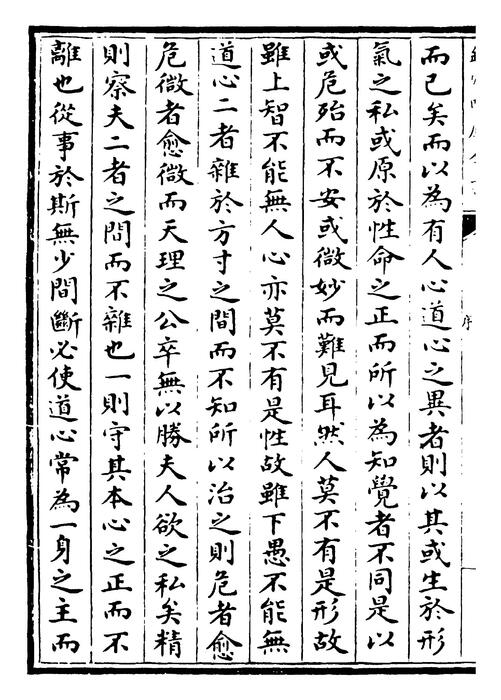 而已矣而以為有人心道心之異者則以其或生於形
氣之私或原於性命之正而所以為知覺者不同是以
或危殆而不安或微妙而難見耳然人莫不有是形故
雖上智不能無人心亦莫不有是性故雖下愚不能無
道心二者雜於方寸之間而不知所以治之則危者愈
危微者愈微而天理之公卒無以勝夫人欲之私矣精
則察夫二者之間而不雜也一則守其本心之正而不
離也從事於斯無少間斷必使道心常為一身之主而
序